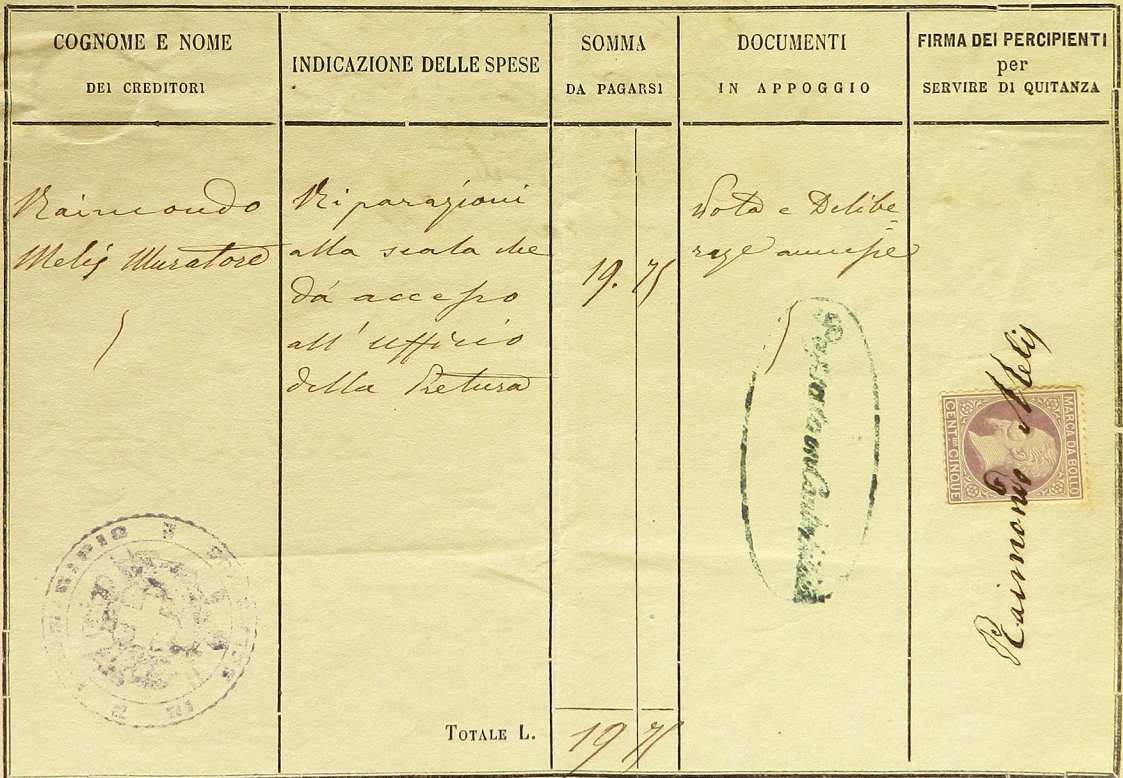 COGNOME E NOME
DEI CREDITORI
INDICAZIONE DELLE SPESE
SOMMA
DA PAGARSI
DOCUMENTI
IN APPOGGIO
FIRMA DEI PERCIPIENTI
per
SERVIRE DI QUITANZA
Raimondo
Melis Muratore
Riparazioni
alla scala che
dà accesso
all'ufficio
della Pretura
19. 75
Nota e Delibe
annesse
MARCA DA BOLLO
CENT.MI CINQUE
Raimondo Melis
TOTALE L.
19 75